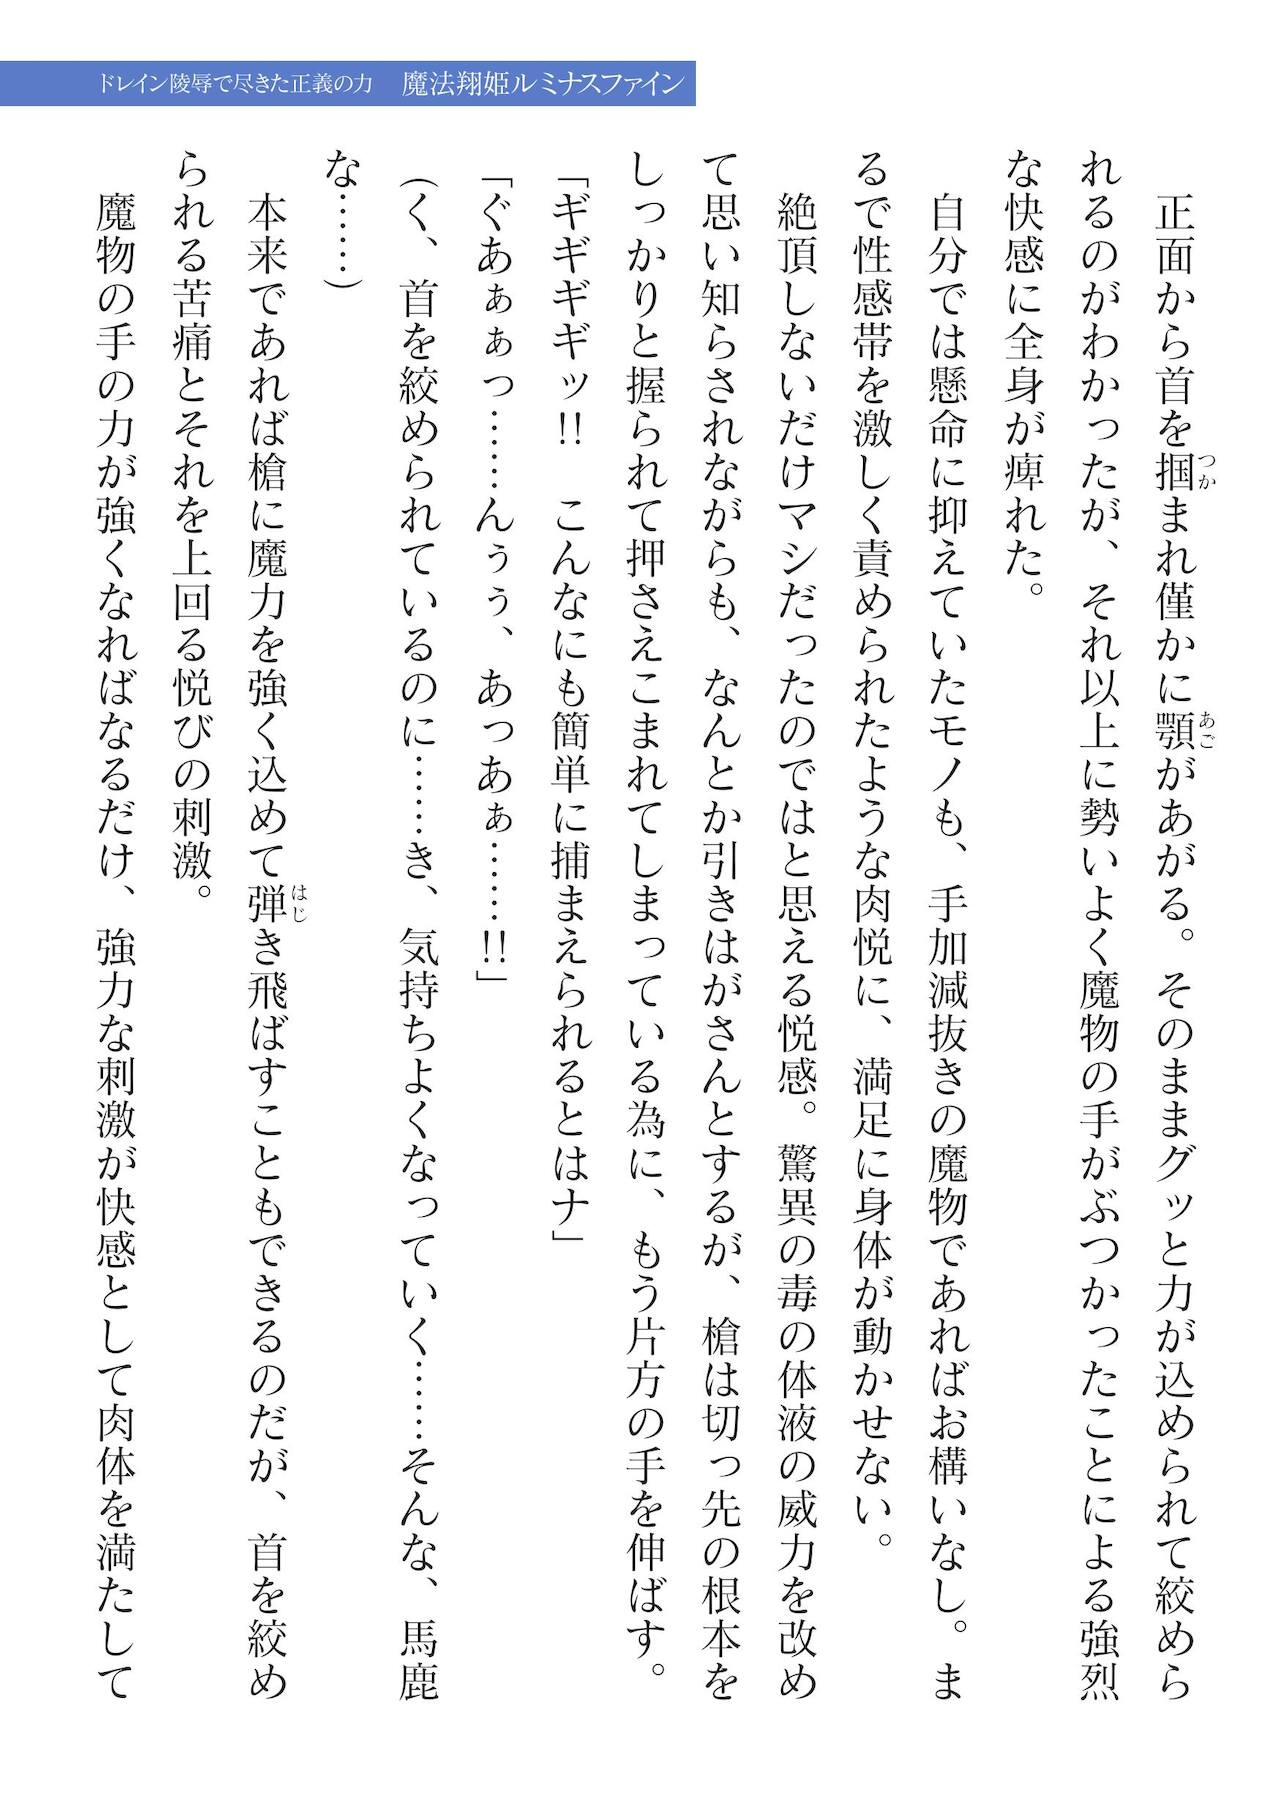 ドレイン陵辱で尽きた正義の力　魔法翔姫ルミナスファイン
　正面から首を掴まれ僅かに顎があがる。そのままグッと力が込められて絞めら
れるのがわかったが、それ以上に勢いよく魔物の手がぶつかったことによる強烈
な快感に全身が痺れた。
　自分では懸命に抑えていたモノも、手加減抜きの魔物であればお構いなし。ま
るで性感帯を激しく責められたような肉悦に、満足に身体が動かせない。
　絶頂しないだけマシだったのではと思える悦感。驚異の毒の体液の威力を改め
て思い知らされながらも、なんとか引きはがさんとするが、槍は切っ先の根本を
しっかりと握られて押さえこまれてしまっている為に、もう片方の手を伸ばす。
「ギギギギッ!!　こんなにも簡単に捕まえられるとはナ」
「ぐあぁぁっ……んぅぅ、あっあぁ……!!」
（く、首を絞められているのに……き、気持ちよくなっていく……そんな、馬鹿
な……）
　本来であれば槍に魔力を強く込めて弾き飛ばすこともできるのだが、首を絞め
られる苦痛とそれを上回る悦びの刺激。
　魔物の手の力が強くなればなるだけ、強力な刺激が快感として肉体を満たして
つか
あご
はじ